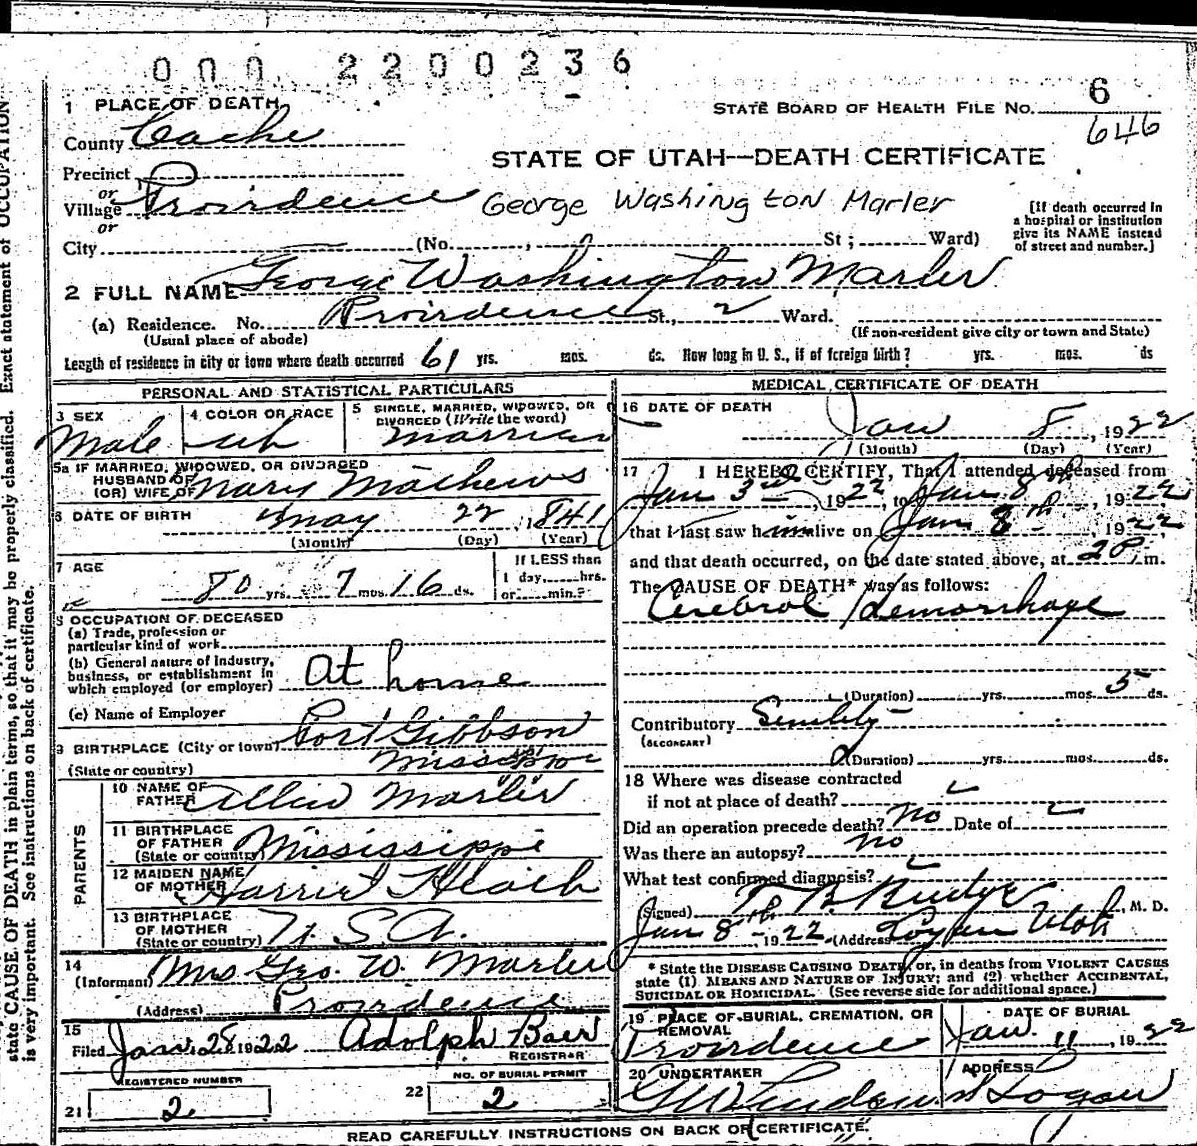 000 2200236
1 PLACE OF DEATH
STATE BOARD OF HEALTH FILE NO. 6
646
County Cache
STATE OF UTAH—DEATH CERTIFICATE
Precinct
or
Village Providence
George Washington Marler
[If death occurred in
a hospital or institution
give its NAME instead
of street and number.]
or
City (No. , St ; Ward)
2 FULL NAME George Washington Marler
(a) Residence. No. Providence St., 2 Ward.
(Usual place of abode) (If non-resident give city or town and State)
Length of residence in city or town where death occurred 61 yrs. mos. ds. How long in U. S., if of foreign birth? yrs. mos. ds
PERSONAL AND STATISTICAL PARTICULARS
3 SEX
Male
4 COLOR OR RACE
wh
5 SINGLE, MARRIED, WIDOWED, OR
DIVORCED (Write the word)
Married
5a IF MARRIED, WIDOWED, OR DIVORCED
HUSBAND OF
(OR) WIFE OF Mary Mathews
6 DATE OF BIRTH May 22, 1841
(Month) (Day) (Year)
7 AGE
80 yrs. 7 mos. 16 ds.
If LESS than
1 day, hrs.
or min.?
8 OCCUPATION OF DECEASED
(a) Trade, profession or
particular kind of work
(b) General nature of Industry,
business, or establishment in
which employed (or employer) At home
(c) Name of Employer
9 BIRTHPLACE (City or town) Port Gibbson
(State or country) Mississippi
PARENTS
10 NAME OF
FATHER Allen Marler
11 BIRTHPLACE
OF FATHER
(State or country) Mississippi
12 MAIDEN NAME
OF MOTHER Harriet
13 BIRTHPLACE
OF MOTHER
(State or country) U. S. A.
14
(Informant) Mrs Geo. W. Marler
(Address) Providence
15
Filed Jan. 28 1922 Adolph Baer
REGISTRAR
REGISTERED NUMBER
21 2
NO. OF BURIAL PERMIT
22 2
MEDICAL CERTIFICATE OF DEATH
16 DATE OF DEATH
Jan 8, 1922
(Month) (Day) (Year)
17 I HEREBY CERTIFY, That I attended deceased from
Jan 3rd, 1922, to Jan 8th, 1922
that I last saw him alive on Jan 8th, 1922
and that death occurred, on the date stated above, at 2 P m.
The CAUSE OF DEATH* was as follows:
Cerebral Hemorrhage
(Duration) yrs. mos. 5 ds.
Contributory Senility
(SECONDARY)
(Duration) yrs. mos. ds.
18 Where was disease contracted
if not at place of death?
Did an operation precede death? No Date of
Was there an autopsy? No
What test confirmed diagnosis?
(Signed) T. B. Budge, M. D.
Jan 8th, 1922 (Address) Logan Utah
* State the DISEASE CAUSING DEATH, or, in deaths from VIOLENT CAUSES
state (1) MEANS AND NATURE OF INJURY; and (2) whether ACCIDENTAL,
SUICIDAL OR HOMICIDAL. (See reverse side for additional space.)
19 PLACE OF BURIAL, CREMATION, OR
REMOVAL
Providence
DATE OF BURIAL
Jan. 11, 1922
20 UNDERTAKER
ADDRESS
Logan
READ CAREFULLY INSTRUCTIONS ON BACK OF CERTIFICATE.
state CAUSE OF DEATH in plain terms, so that it may be properly classified. Exact statement of OCCUPATION
is very important. See instructions on back of certificate.